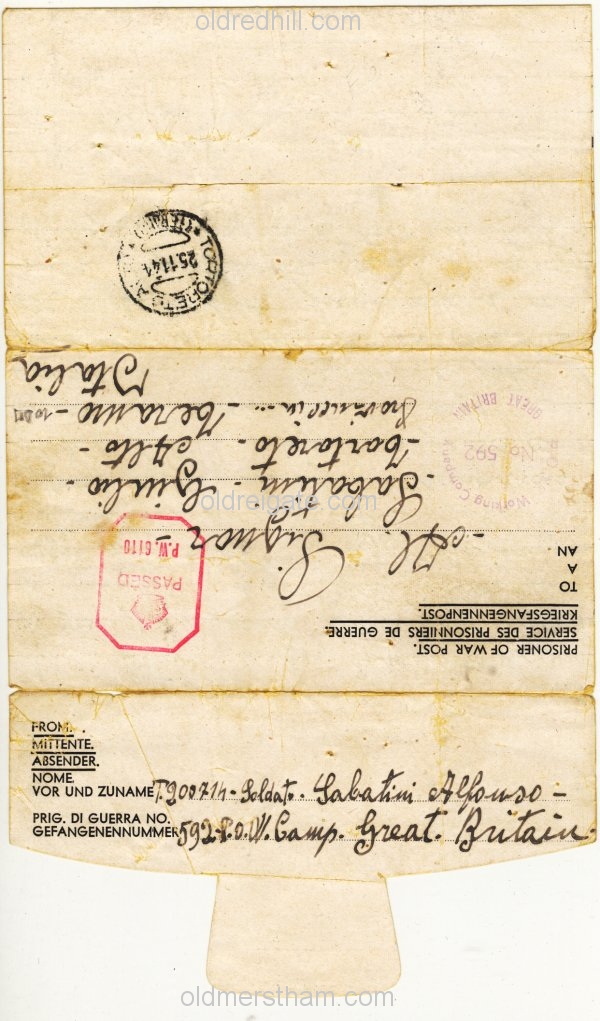 oldredhill.com
TORTORETO ALTO
*(TERAMO)*
25.11.44
PRISONER OF WAR POST.
SERVICE DES PRISONNIERS DE GUERRE.
KRIEGSFANGENNENPOST.
TO
A
AN
- Al. Signor -
- Sabatini - Giulio -
- tortoreto - Alto -
Provincia... - teramo -
Italia
PASSED
P.W. 6110
Working Company
No. 592
GREAT BRITAIN
oldreigate.com
FROM.
MITTENTE.
ABSENDER.
NOME.
VOR UND ZUNAME T.200714 - Soldato - Sabatini Alfonso -
PRIG. DI GUERRA NO.
GEFANGENENNUMMER 592 - P.O.W. Camp. Great. Britain -
oldmerstham.com